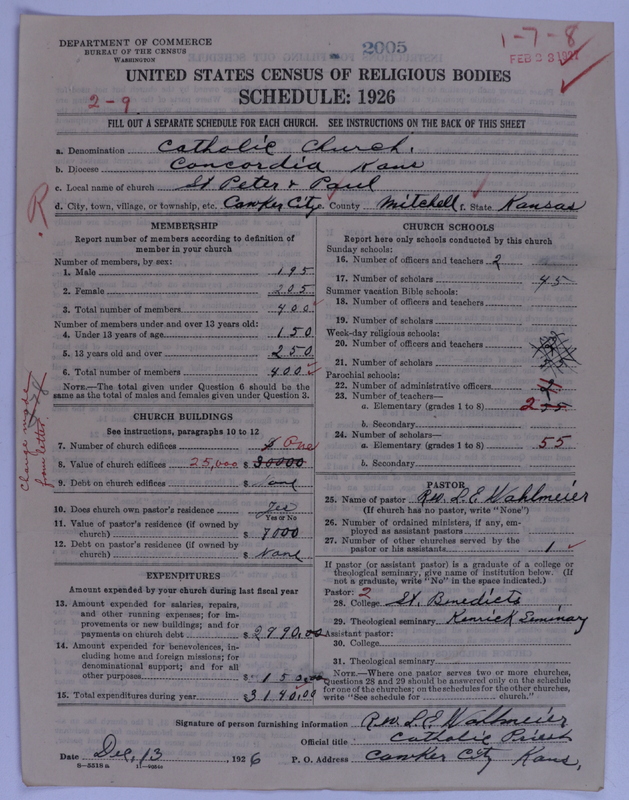 DEPARTMENT OF COMMERCE
BUREAU OF THE CENSUS
WASHINGTON
2005
1-7-8
FEB 23 1927
UNITED STATES CENSUS OF RELIGIOUS BODIES
SCHEDULE: 1926
2-9
FILL OUT A SEPARATE SCHEDULE FOR EACH CHURCH. SEE INSTRUCTIONS ON THE BACK OF THIS SHEET
a. Denomination Catholic Church.
b. Diocese Concordia Kans
c. Local name of church St Peter & Paul
d. City, town, village, or township, etc. Cawker City e. County Mitchell f. State Kansas
R
MEMBERSHIP
Report number of members according to definition of
member in your church
Number of members, by sex:
1. Male 195
2. Female 205
3. Total number of members 400
Number of members under and over 13 years old:
4. Under 13 years of age 150
5. 13 years old and over 250
6. Total number of members 400
NOTE.—The total given under Question 6 should be the
same as the total of males and females given under Question 3.
Change made
from letter
CHURCH BUILDINGS
See instructions, paragraphs 10 to 12
7. Number of church edifices One
8. Value of church edifices 25,000 $ 30000
9. Debt on church edifices $ None
10. Does church own pastor's residence Yes
Yes or No
11. Value of pastor's residence (if owned by
church) $ 7000
12. Debt on pastor's residence (if owned by
church) $ None
EXPENDITURES
Amount expended by your church during last fiscal year
13. Amount expended for salaries, repairs,
and other running expenses; for im-
provements or new buildings; and for
payments on church debt $ 2990.00
14. Amount expended for benevolences, in-
cluding home and foreign missions; for
denominational support; and for all
other purposes $ 150.00
15. Total expenditures during year $ 3140.00
CHURCH SCHOOLS
Report here only schools conducted by this church
Sunday schools:
16. Number of officers and teachers 2
17. Number of scholars 45
Summer vacation Bible schools:
18. Number of officers and teachers
19. Number of scholars
Week-day religious schools:
20. Number of officers and teachers
21. Number of scholars
Parochial schools:
22. Number of administrative officers
23. Number of teachers—
a. Elementary (grades 1 to 8) 2
b. Secondary
24. Number of scholars—
a. Elementary (grades 1 to 8) 55
b. Secondary
PASTOR
25. Name of pastor Rev. L. E. Wahlmeier
(If church has no pastor, write "None")
26. Number of ordained ministers, if any, em-
ployed as assistant pastors
27. Number of other churches served by the
pastor or his assistants 1
If pastor (or assistant pastor) is a graduate of a college or
theological seminary, give name of institution below. (If
not a graduate, write "No" in the space indicated.)
Pastor: 2
28. College St. Benedicts
29. Theological seminary Kenrick Seminary
Assistant pastor:
30. College
31. Theological seminary
NOTE.—Where one pastor serves two or more churches,
Questions 28 and 29 should be answered only on the schedule
for one of the churches; on the schedules for the other churches,
write "See schedule for church."
Signature of person furnishing information Rev. L. E. Wahlmeier
Official title Catholic Priest
Date Dec, 13, 1926 P. O. Address Cawker City Kans,
8-5518 a